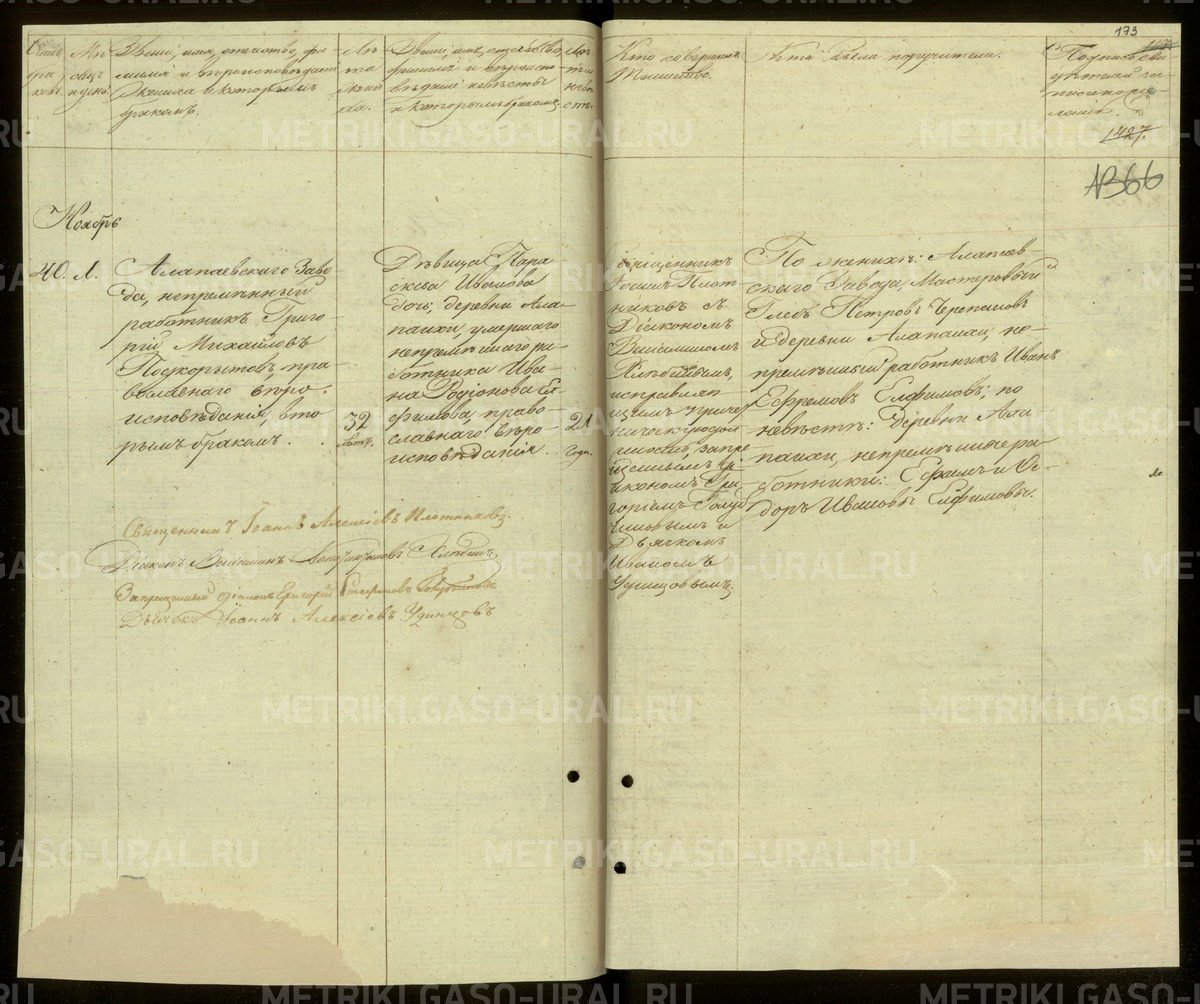 173
Счетъ
бра
ковъ.
Мѣ
сяцъ
и день.
Званіе, имя, отчество, фа
милія и вѣроисповѣданіе
жениха и которымъ
бракомъ.
Лѣ
та
жени
ха.
Званіе, имя, отчество,
фамилія и вѣроиспо
вѣданіе невѣсты
и которымъ бракомъ.
Лѣ
та
невѣ
сты.
Кто совершалъ
Таинство.
Кто были поручители.
Подпись сви
дѣтелей за
писи по же
ланію.
1427.
1366
Ноябрь
40. Л.
Алапаевскаго Заво-
да, непремѣнный
работникъ Григо-
рій Михайловъ
Подкорытовъ, пра-
вославнаго вѣро-
исповѣданія, вто
рымъ бракомъ.
32
Дѣвица Пара
скева Иванова
дочь, деревни Ала-
паихи, умершаго
непремѣннаго ра-
ботника Ива-
на Родіонова Ел-
фимова, право-
славнаго вѣро-
исповѣданія.
21
года.
Священникъ
Іоаннъ Плот-
никовъ съ
Діакономъ
Василискомъ
Хлѣбинымъ,
исправляю
щимъ причет
ническую дол
жность, запре
щеннымъ Ді
акономъ Гри-
горіемъ Голуб
чиковымъ и
Дьячкомъ
Иваномъ
Удинцовымъ.
По женихѣ: Алапаев-
скаго Завода, Мастеровый
Глебъ Петровъ Черепановъ
и деревни Алапаихи, не-
премѣнный работникъ Иванъ
Ефремовъ Елфимовъ; по
невѣстѣ: деревни Ала
паихи, непремѣнные ра
ботники: Ефимъ и Ѳе-
доръ Ивановы Елфимовы.
Священникъ Іоаннъ Алексіевъ Плотниковъ.
Діаконъ Василискъ Хлѣбинъ.
Запрещенный діаконъ Григорій Стефановъ
Дьячекъ Іоаннъ Алексіевъ Удинцовъ
METRIKI.GASO-URAL.RU